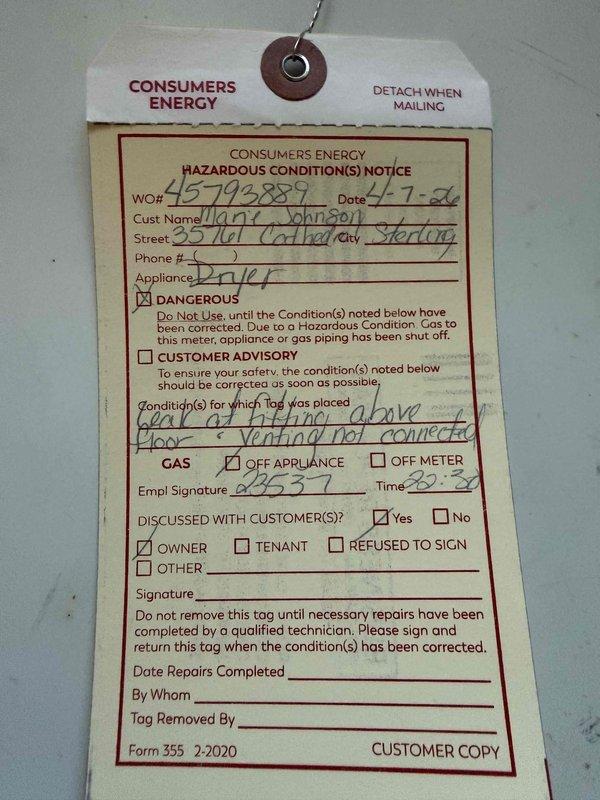 CONSUMERS
ENERGY
DETACH WHEN
MAILING
CONSUMERS ENERGY
HAZARDOUS CONDITION(S) NOTICE
WO# 45793889 Date 4-7-26
Cust Name Marie Johnson
Street 35761 Cathedral City Sterling
Phone # ( )
Appliance Dryer
DANGEROUS
Do Not Use, until the Condition(s) noted below have
been corrected. Due to a Hazardous Condition. Gas to
this meter, appliance or gas piping has been shut off.
CUSTOMER ADVISORY
To ensure your safety, the condition(s) noted below
should be corrected as soon as possible.
Condition(s) for which Tag was placed
Leak at fitting above
floor & Venting not connected
GAS OFF APPLIANCE OFF METER
Empl Signature 23537 Time 22:30
DISCUSSED WITH CUSTOMER(S)? Yes No
OWNER TENANT REFUSED TO SIGN
OTHER
Signature
Do not remove this tag until necessary repairs have been
completed by a qualified technician. Please sign and
return this tag when the condition(s) has been corrected.
Date Repairs Completed
By Whom
Tag Removed By
Form 355 2-2020 CUSTOMER COPY